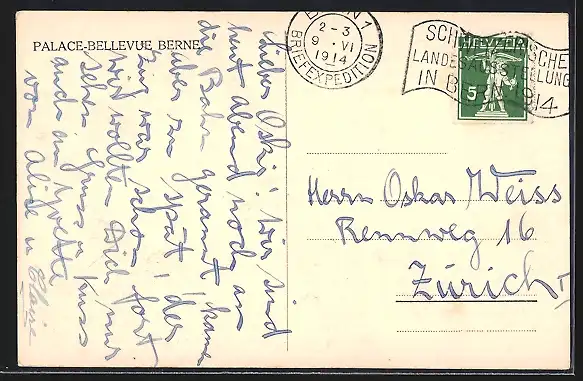 PALACE-BELLEVUE BERNE
Lieber Oski! Wir sind
heut abend noch an
die Bahn gerannt kamen
aber zu spät! der
Zug war schon fort
wir wollten Dich nur
sehen Gruss u Kuss
auch an Yvette
von Alice u Claire
BERN 1
2-3
9. VI
1914
BRIEFEXPEDITION
SCHWEIZERISCHE
LANDESAUSSTELLUNG
IN BERN 1914
HELVETIA
5
Herrn Oskar Weiss
Rennweg 16
Zürich I